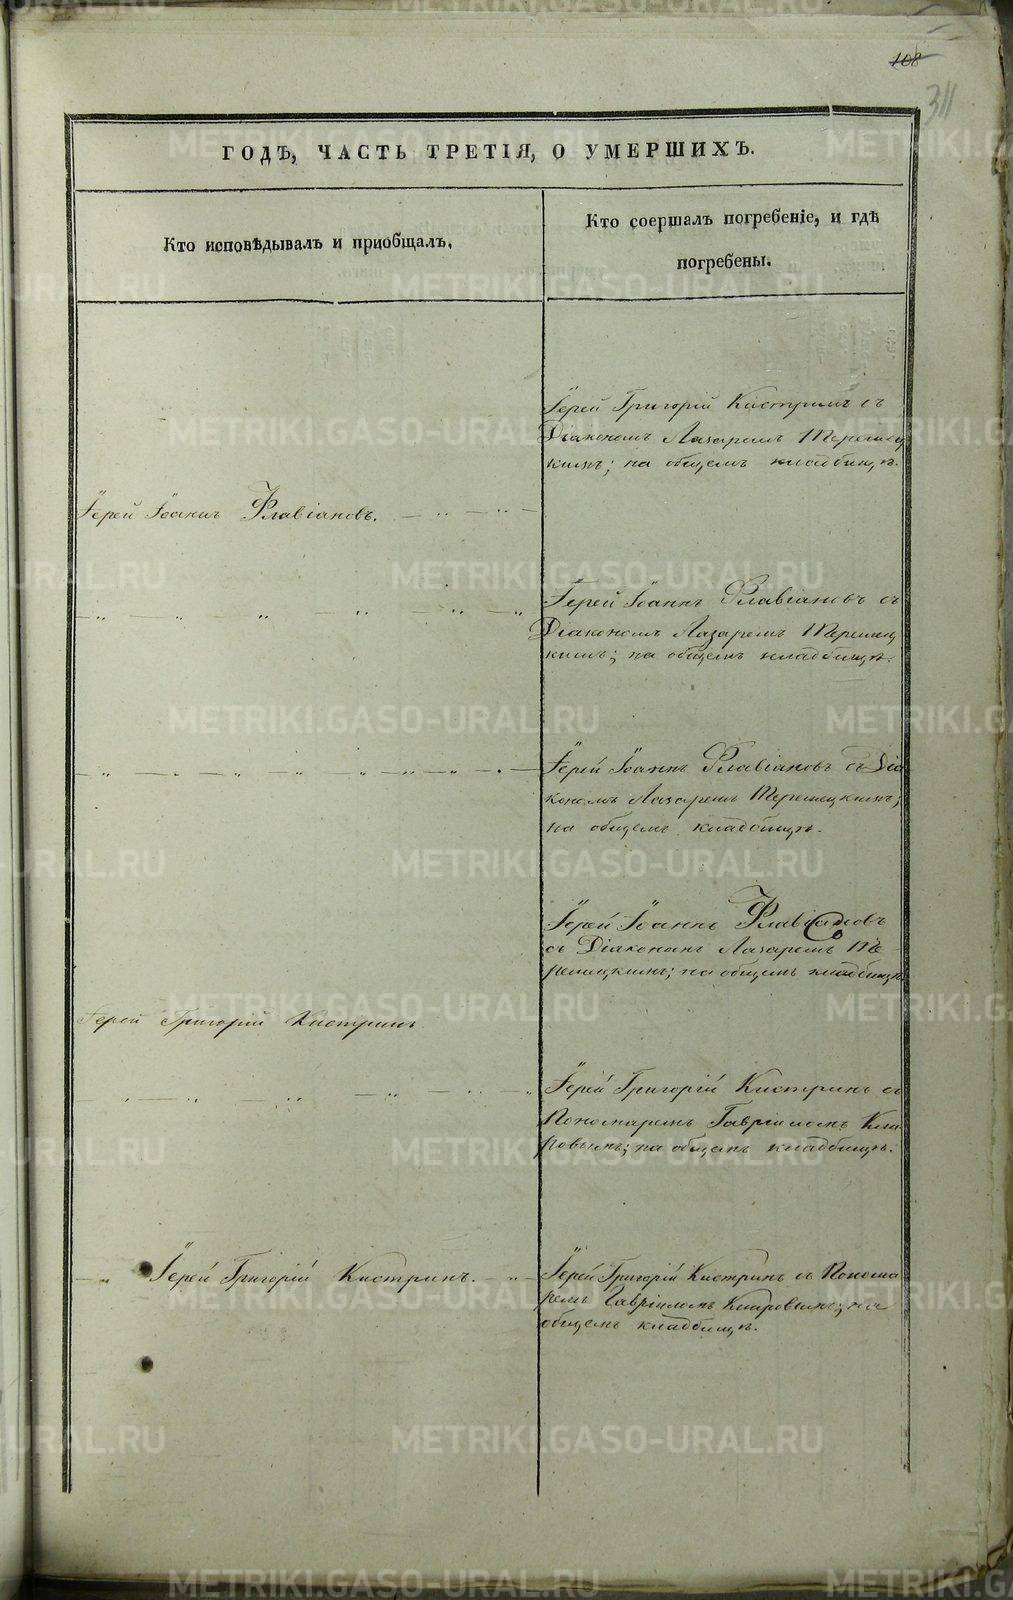 108
311
ГОДЪ, ЧАСТЬ ТРЕТІЯ, О УМЕРШИХЪ.
Кто исповѣдывалъ и приобщалъ.
Кто соершалъ погребеніе, и гдѣ
погребены.
Іерей Григорій Кистринъ съ
Діакономъ Лазаремъ
кимъ; на общемъ кладбищѣ.
Іерей Іоаннъ Флавіановъ.
Іерей Іоаннъ Флавіановъ съ
Діакономъ Лазаремъ
кимъ; на общемъ кладбищѣ.
Іерей Іоаннъ Флавіановъ съ Діа
кономъ Лазаремъ
на общемъ кладбищѣ.
Іерей Іоаннъ Флавіановъ
съ Діакономъ Лазаремъ
на общемъ кладбищѣ
Іерей Григорій Кистринъ
Іерей Григорій Кистринъ съ
Пономаремъ Гавріиломъ
ровымъ; на общемъ кладбищѣ.
Іерей Григорій Кистринъ.
Іерей Григорій Кистринъ съ Понома
ремъ Гавріиломъ на
общемъ кладбищѣ.
METRIKI.GASO-URAL.RU